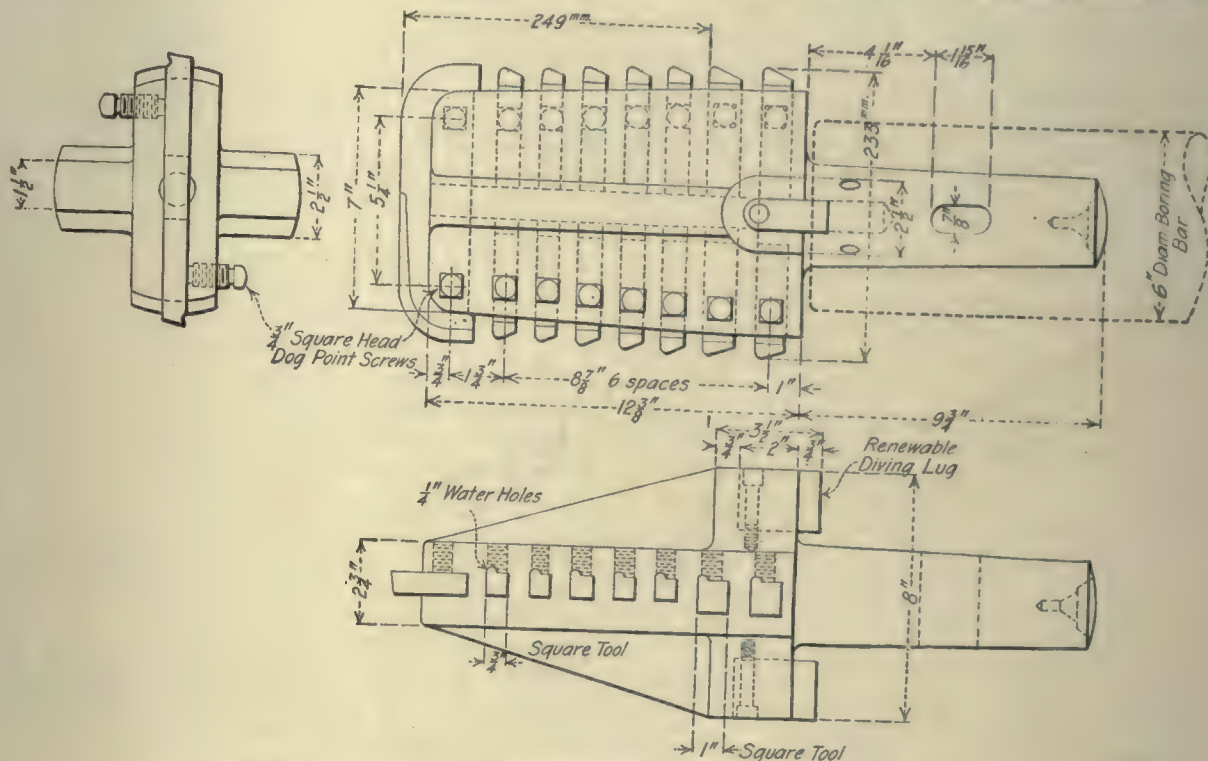 249 mm.
4 1/16"
1 15/16"
1 1/2"
2 1/2"
7"
5 1/4"
233 mm.
2 1/2"
7/8"
6" Diam Boring
Bar
3/4" Square Head
Dog Point Screws
3/4"
1 3/4"
8 7/8" 6 spaces
1"
12 3/8"
9 3/4"
3 1/2"
3/4"
2"
3/4"
Renewable
Diving Lug
1/4" Water Holes
2 3/4"
8"
3/4"
Square Tool
1"
Square Tool